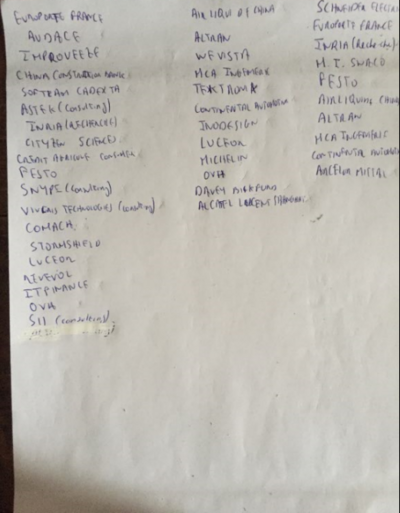 EUROPORTE FRANCE
AUDACE
IMPROVEEZE
CHINA CONSTRUCTION BANK
SOFTEAM CADEXTA
ASTEK (consulting)
INRIA (ASCIENCES)
CITYZEN SCIENCES
CREDIT AGRICOLE CONSUMER
PESTO
SNYPE (consulting)
VIVERIS TECHNOLOGIES (consulting)
COMACH
STORMSHIELD
LUCEOR
ITFINANCE
OVH
SII (consulting)
AIR LIQUIDE CHINA
ALTRAN
WEVISTA
MCA INGENIERIE
CONTINENTAL AUTOMOTIVE
INODESIGN
LUCEOR
MICHELIN
OVH
ALCATEL LUCENT SHANGHAI
SCHNEIDER ELECTRIC
EUROPORTE FRANCE
INRIA (Recherche)
PESTO
AIR LIQUIDE CHINA
ALTRAN
MCA INGENIERIE
CONTINENTAL AUTOMOTIVE
ARCELOR MITTAL